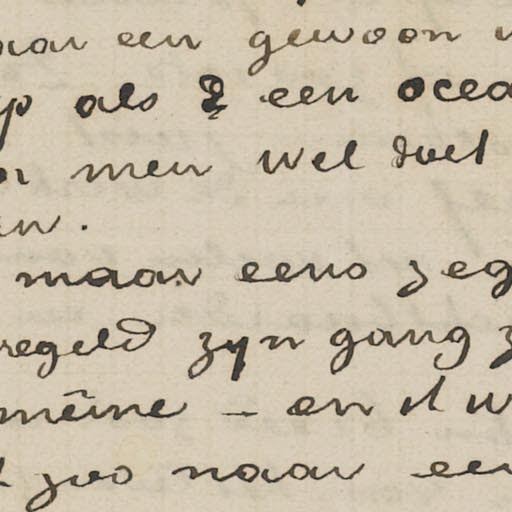 een gewoon
als een ocea
men wel doet
en.
maar eens zeg
regeld zyn gang z
meine – en il w
zoo naar een